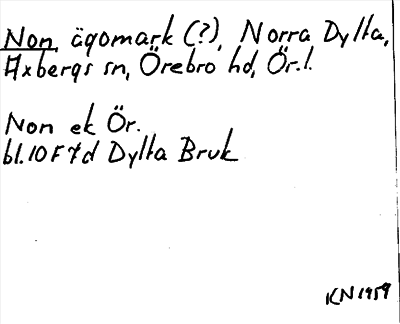 Non, ägomark (?), Norra Dylta,
Axbergs sn, Örebro hd, Ör. l.
Non ek Ör.
bl. 10 F 7d Dylta Bruk
KN 1959